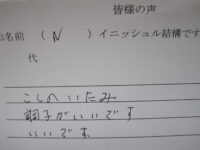 皆様の声
お名前 ( N ) イニッシュル結構です
代
こしのいたみ
調子がいいです
いいです。